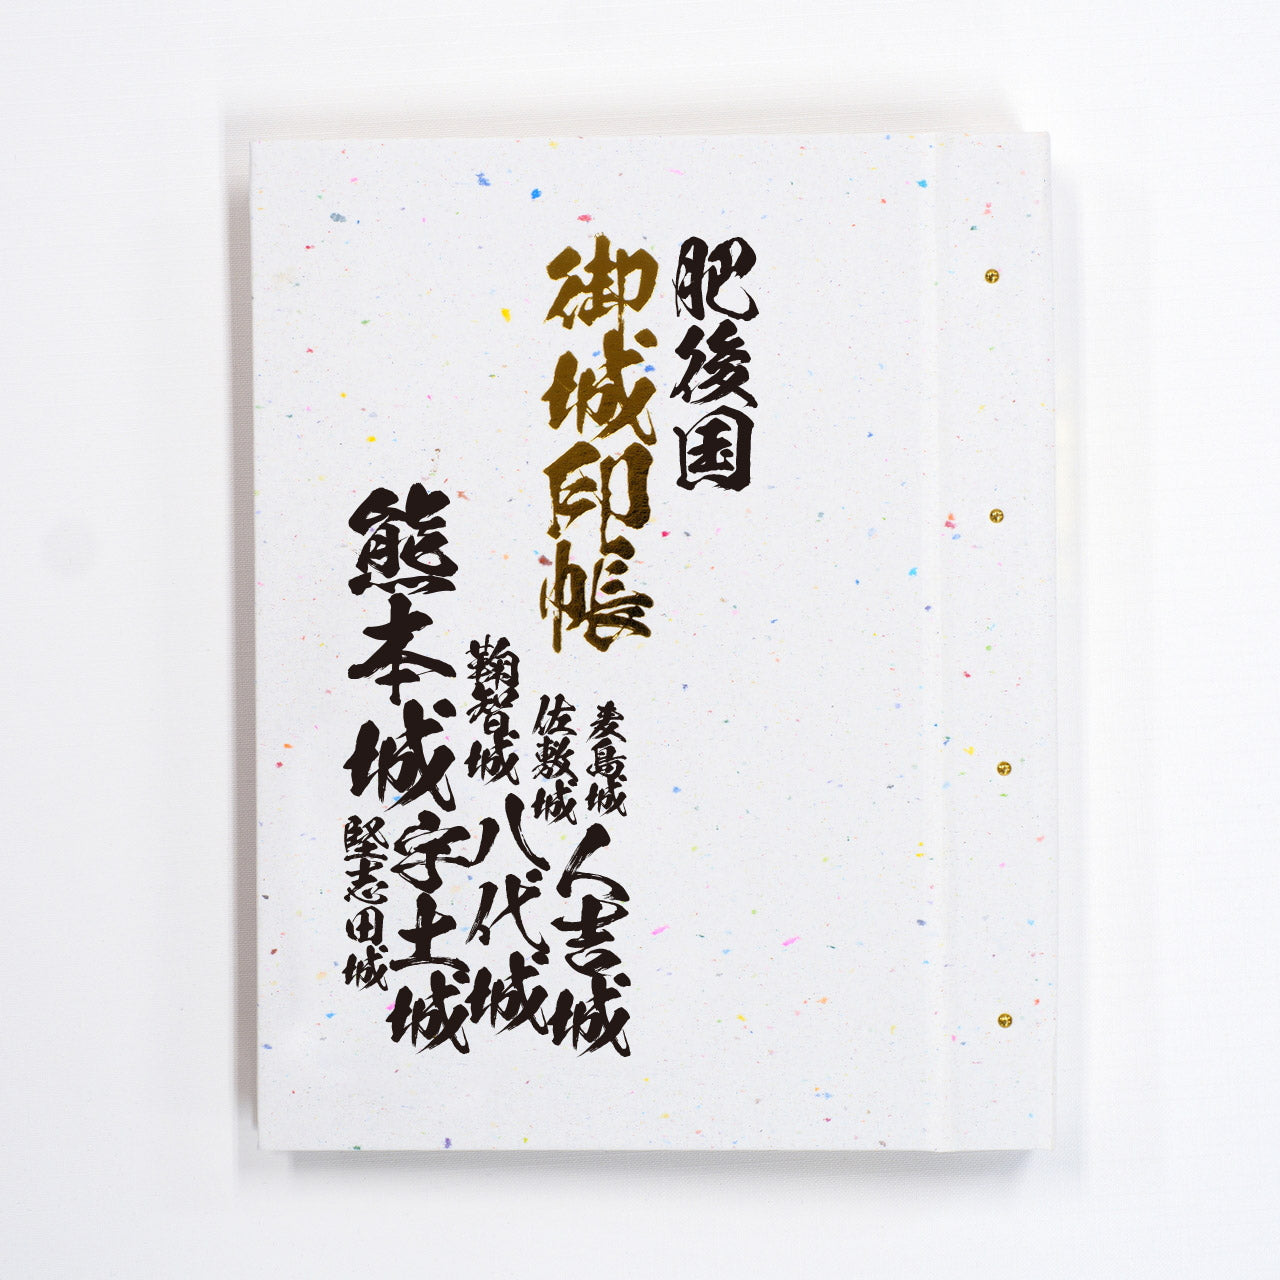 肥後国
御城印帳
麦島城
人吉城
佐敷城
八代城
鞠智城
宇土城
熊本城
堅志田城